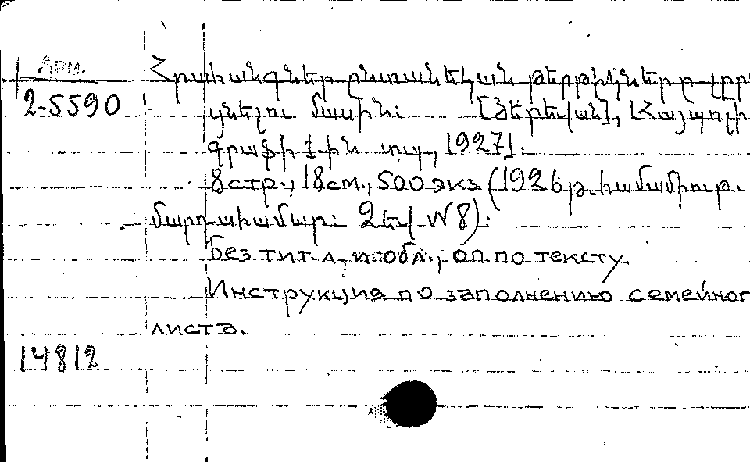 Арм.
2-5590
Հրահանգներ ընտանեկան թերթիկները լրա
ցնելու մասին: [Յերեվան], [Հայպոլի
գրաֆի 1-ին տպ., 1927].
8 стр., 18 см., 500 экз (1926 թ. համամիութ.
մարդահամար: Ձեվ №8).
Без тит. л. и обл., оп. по тексту.
Инструкция по заполнению семейног
листа.
14812